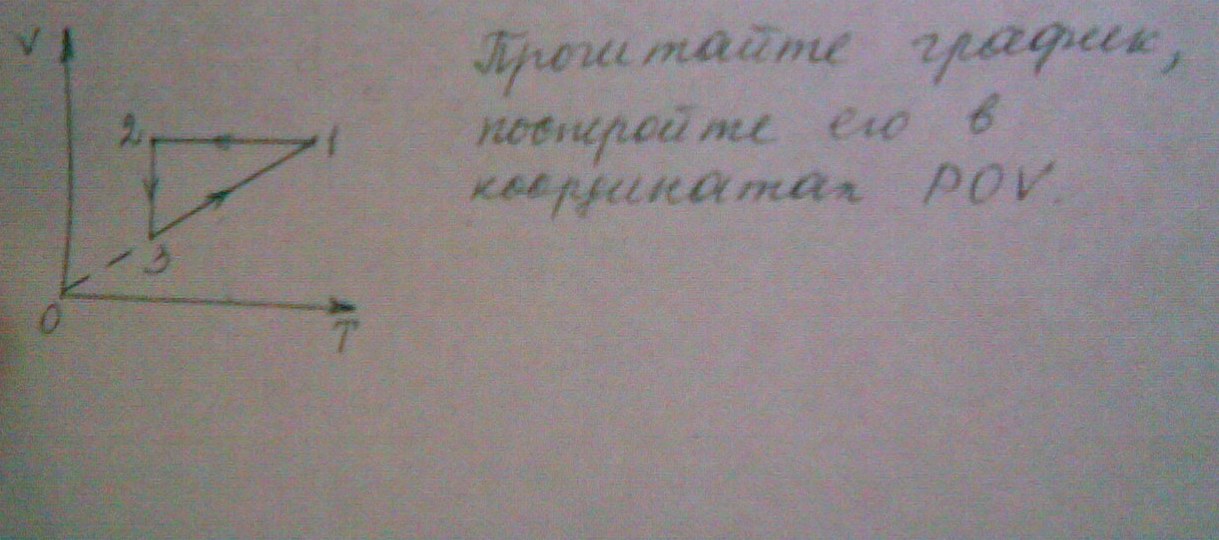 V
Прочитайте график,
постройте его в
координатах POV.
2
1
3
0
T